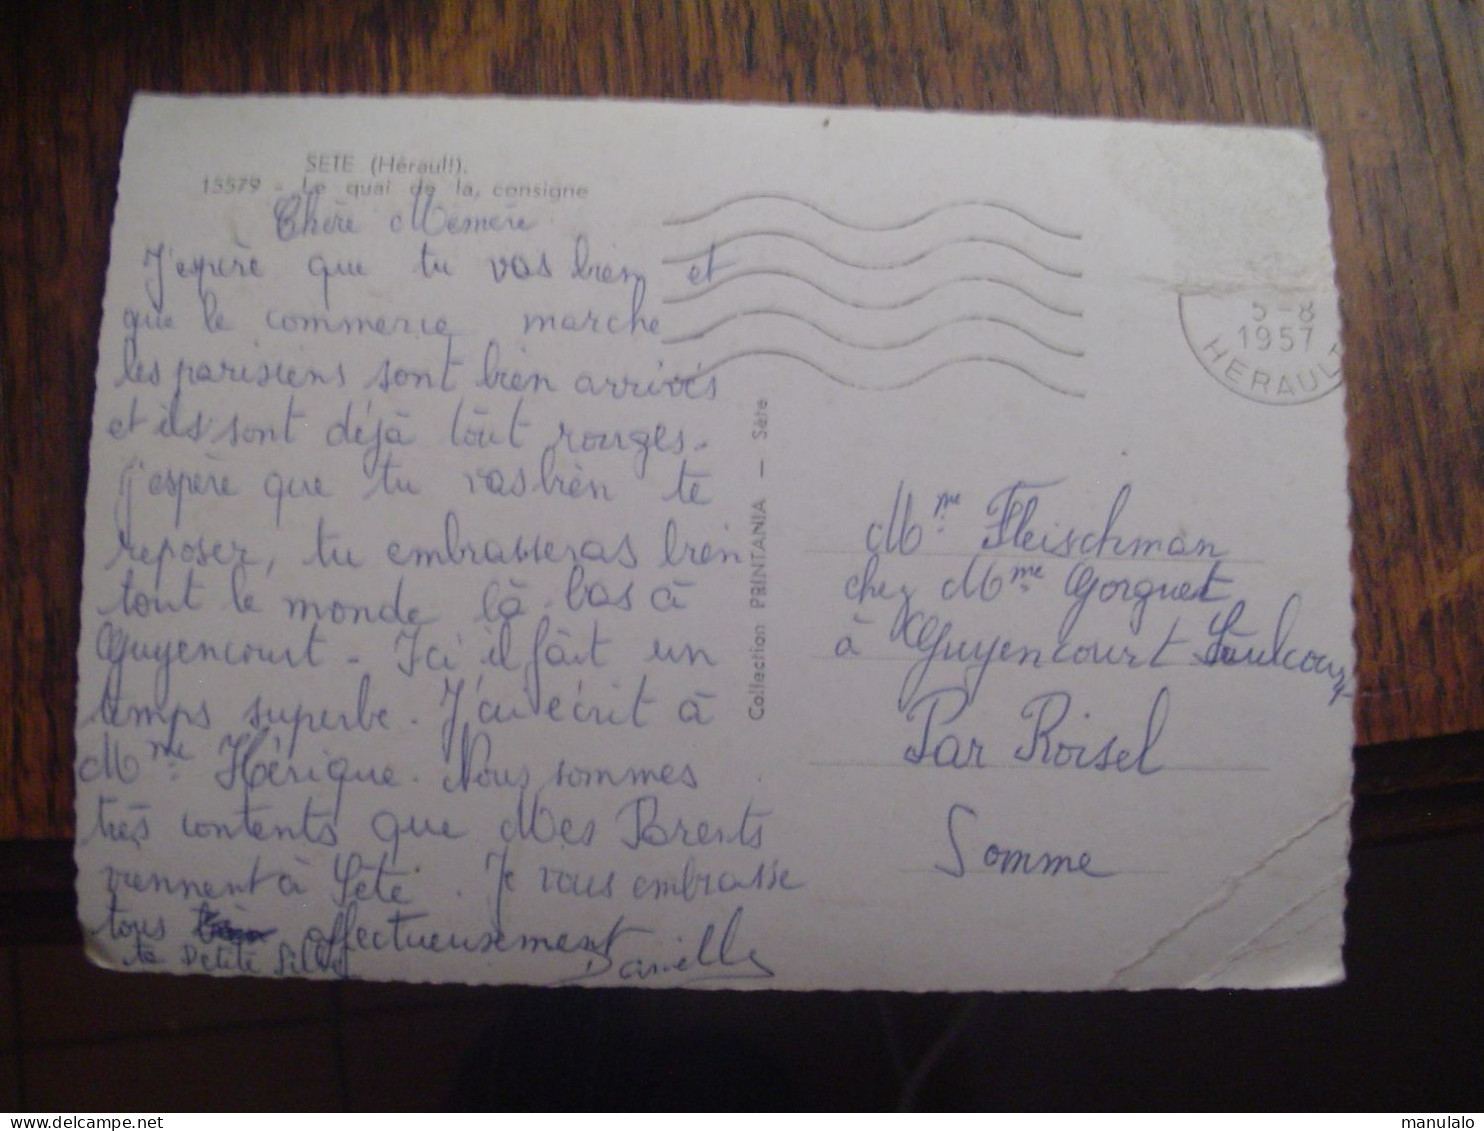 SETE (Hérault).
15579 - Le quai de la consigne
Chère Mémère
J'espère que tu vas bien et
que le commerce marche
les parisiens sont bien arrivés
et ils sont déjà tout rouges.
j'espère que tu vas bien te
reposer, tu embrasseras bien
tout le monde là-bas à
Guyencourt. Ici il fait un
temps superbe. J'ai écrit à
Mme Hérique. Nous sommes
très contents que Mes Parents
viennent à Sète. Je vous embrasse
tous affectueusement
ta Petite Danielle
Collection PRINTANIA — Sète
5-8
1957
HERAULT
Mme Fleischman
chez Mme Gorguet
à Guyencourt Saulcourt
Par Roisel
Somme
manulalo